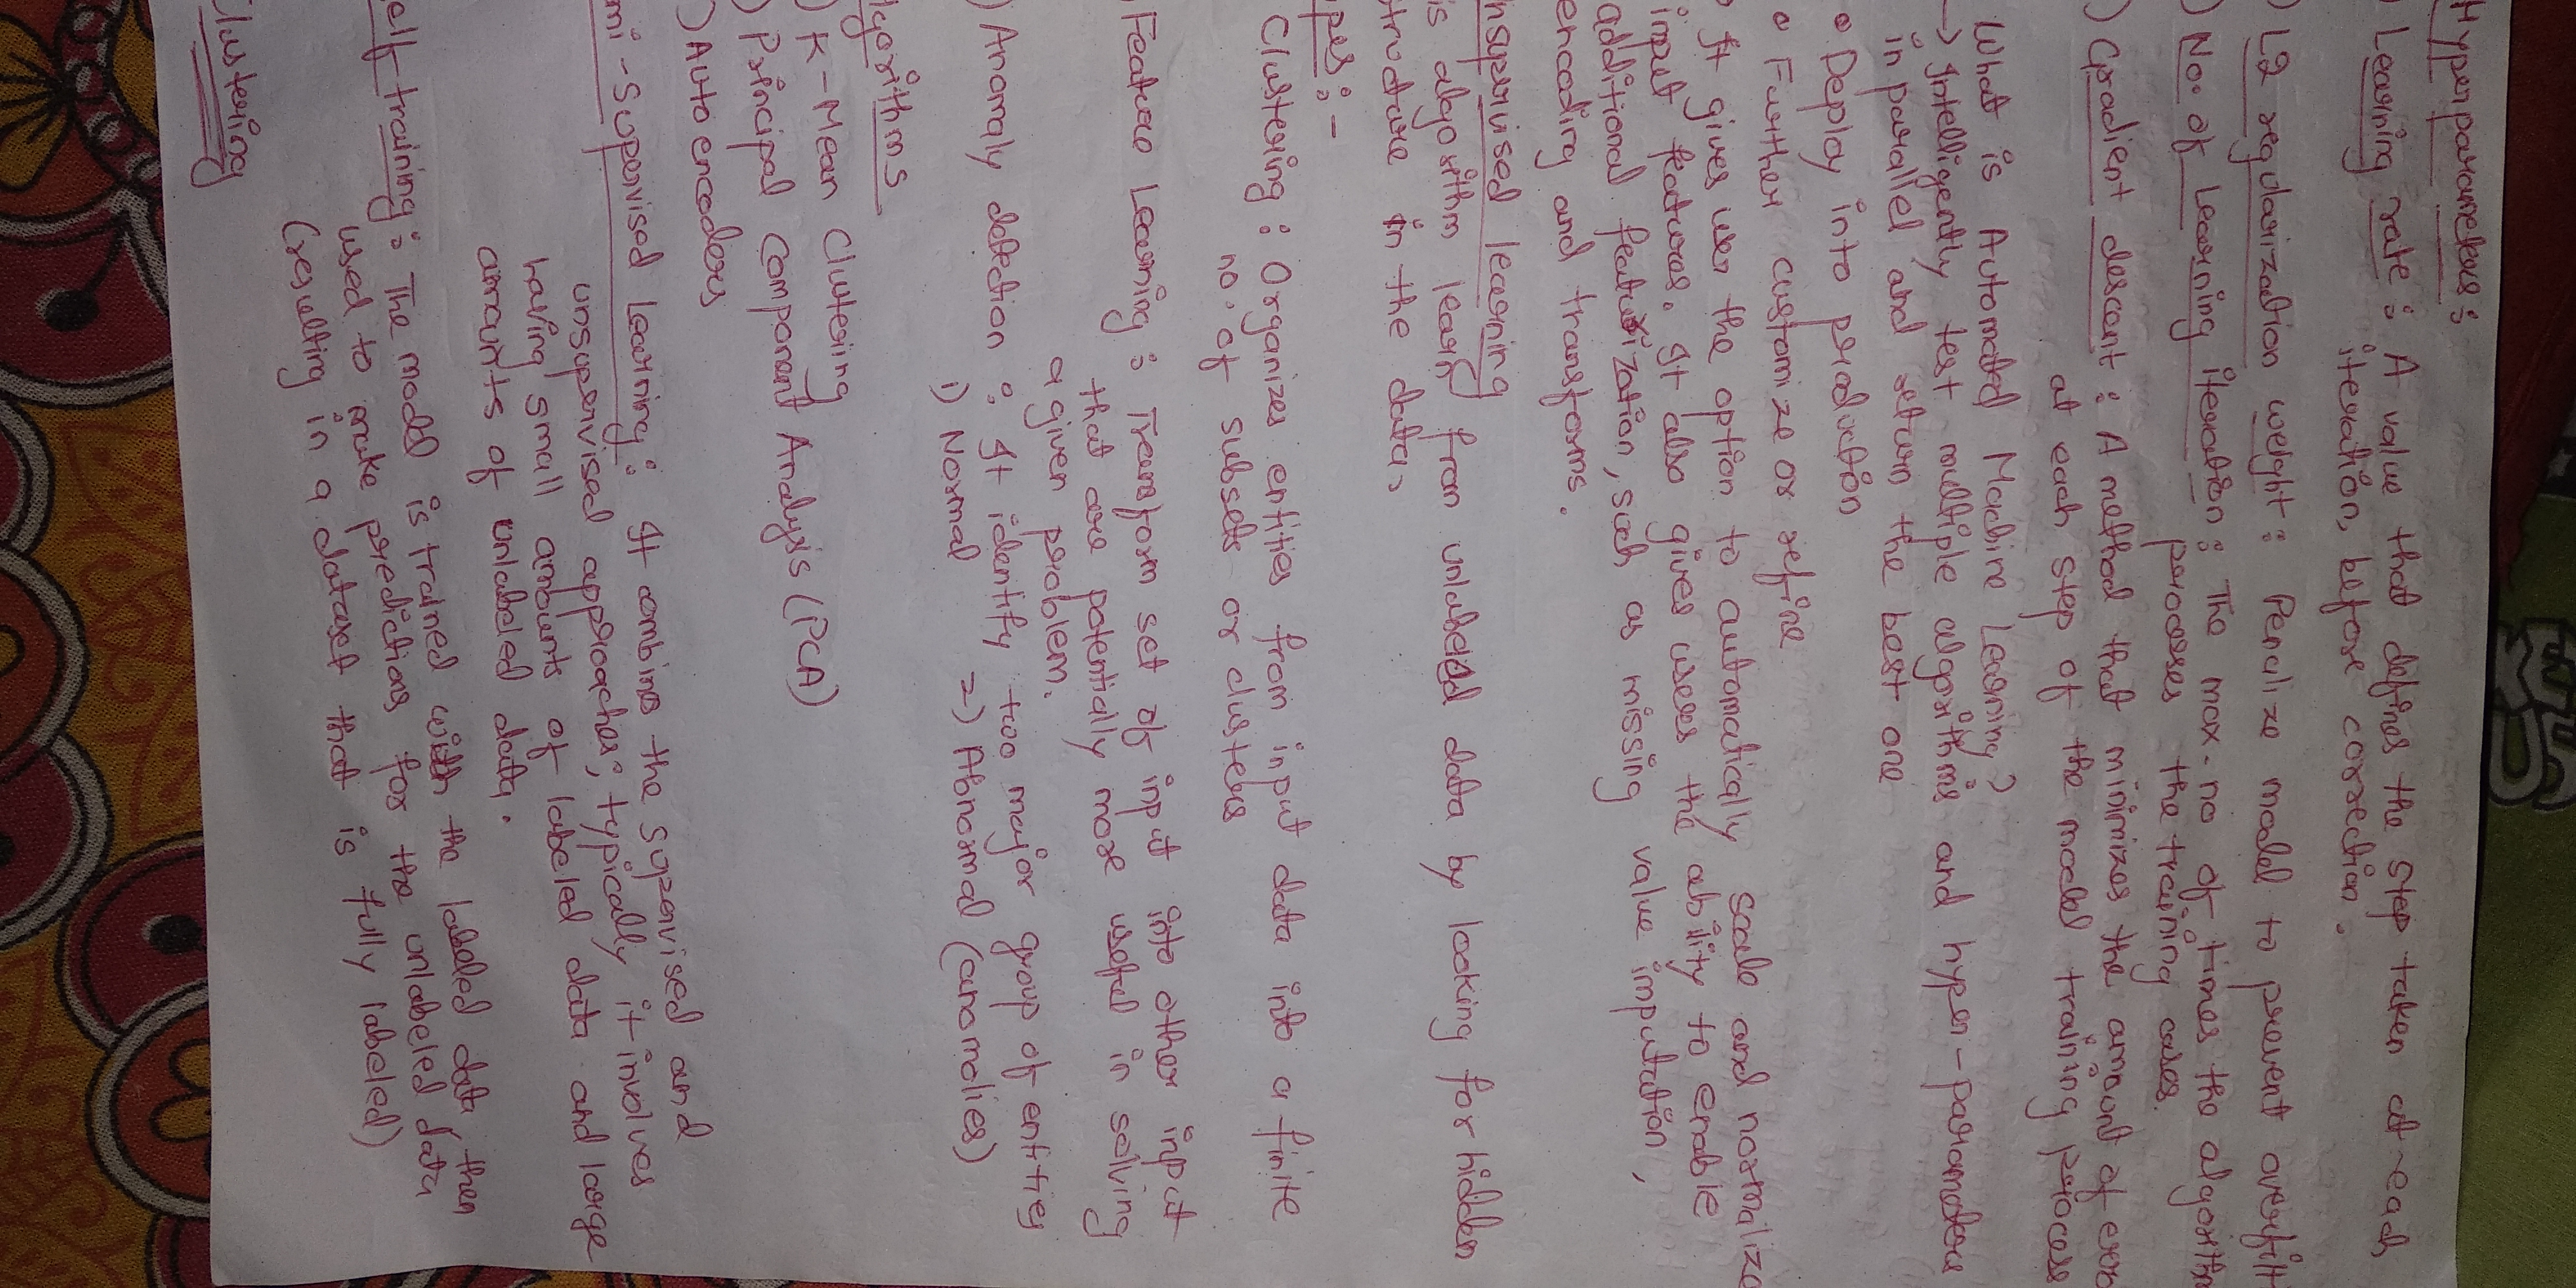 Hyperparameters:
) Learning rate: A value that defines the step taken at each
iteration, before correction.
) L2 regularization weight: Penalize model to prevent overfitt
) No. of Learning iteration: The max-no of times the algorithm
processes the training cases.
) Gradient descent: A method that minimizes the amount of erro
at each step of the model training process
What is Automated Machine Learning?
→ Intelligently test multiple algorithms and hyper-parameters
in parallel and return the best one
• Deploy into production
• Further customize or refine
It gives user the option to automatically scale and normalize
input features. It also gives users the ability to enable
additional featurization, such as missing value imputation,
encoding and transforms.
nsupervised learning
is algorithm learn from unlabeled data by looking for hidden
structure in the data,
ypes:-
Clustering: Organizes entities from input data into a finite
no. of subsets or clusters
Feature Learning: Transform set of input into other input
that are potentially more useful in solving
a given problem.
) Anomaly detection: It identify two major group of entities
1) Normal 2) Abnormal (anomalies)
lgorithms
) K-Mean Clutesing
) Principal Component Analysis (PCA)
) Autoencoders
mi-Supervised Learning: It combines the Supervised and
unsupervised approaches; typically it involves
having small amounts of labeled data and large
amounts of unlabeled data.
elf training: The model is trained with the labeled data then
used to make predictions for the unlabeled data
(resulting in a dataset that is fully labeled)
Clustering
KE
US